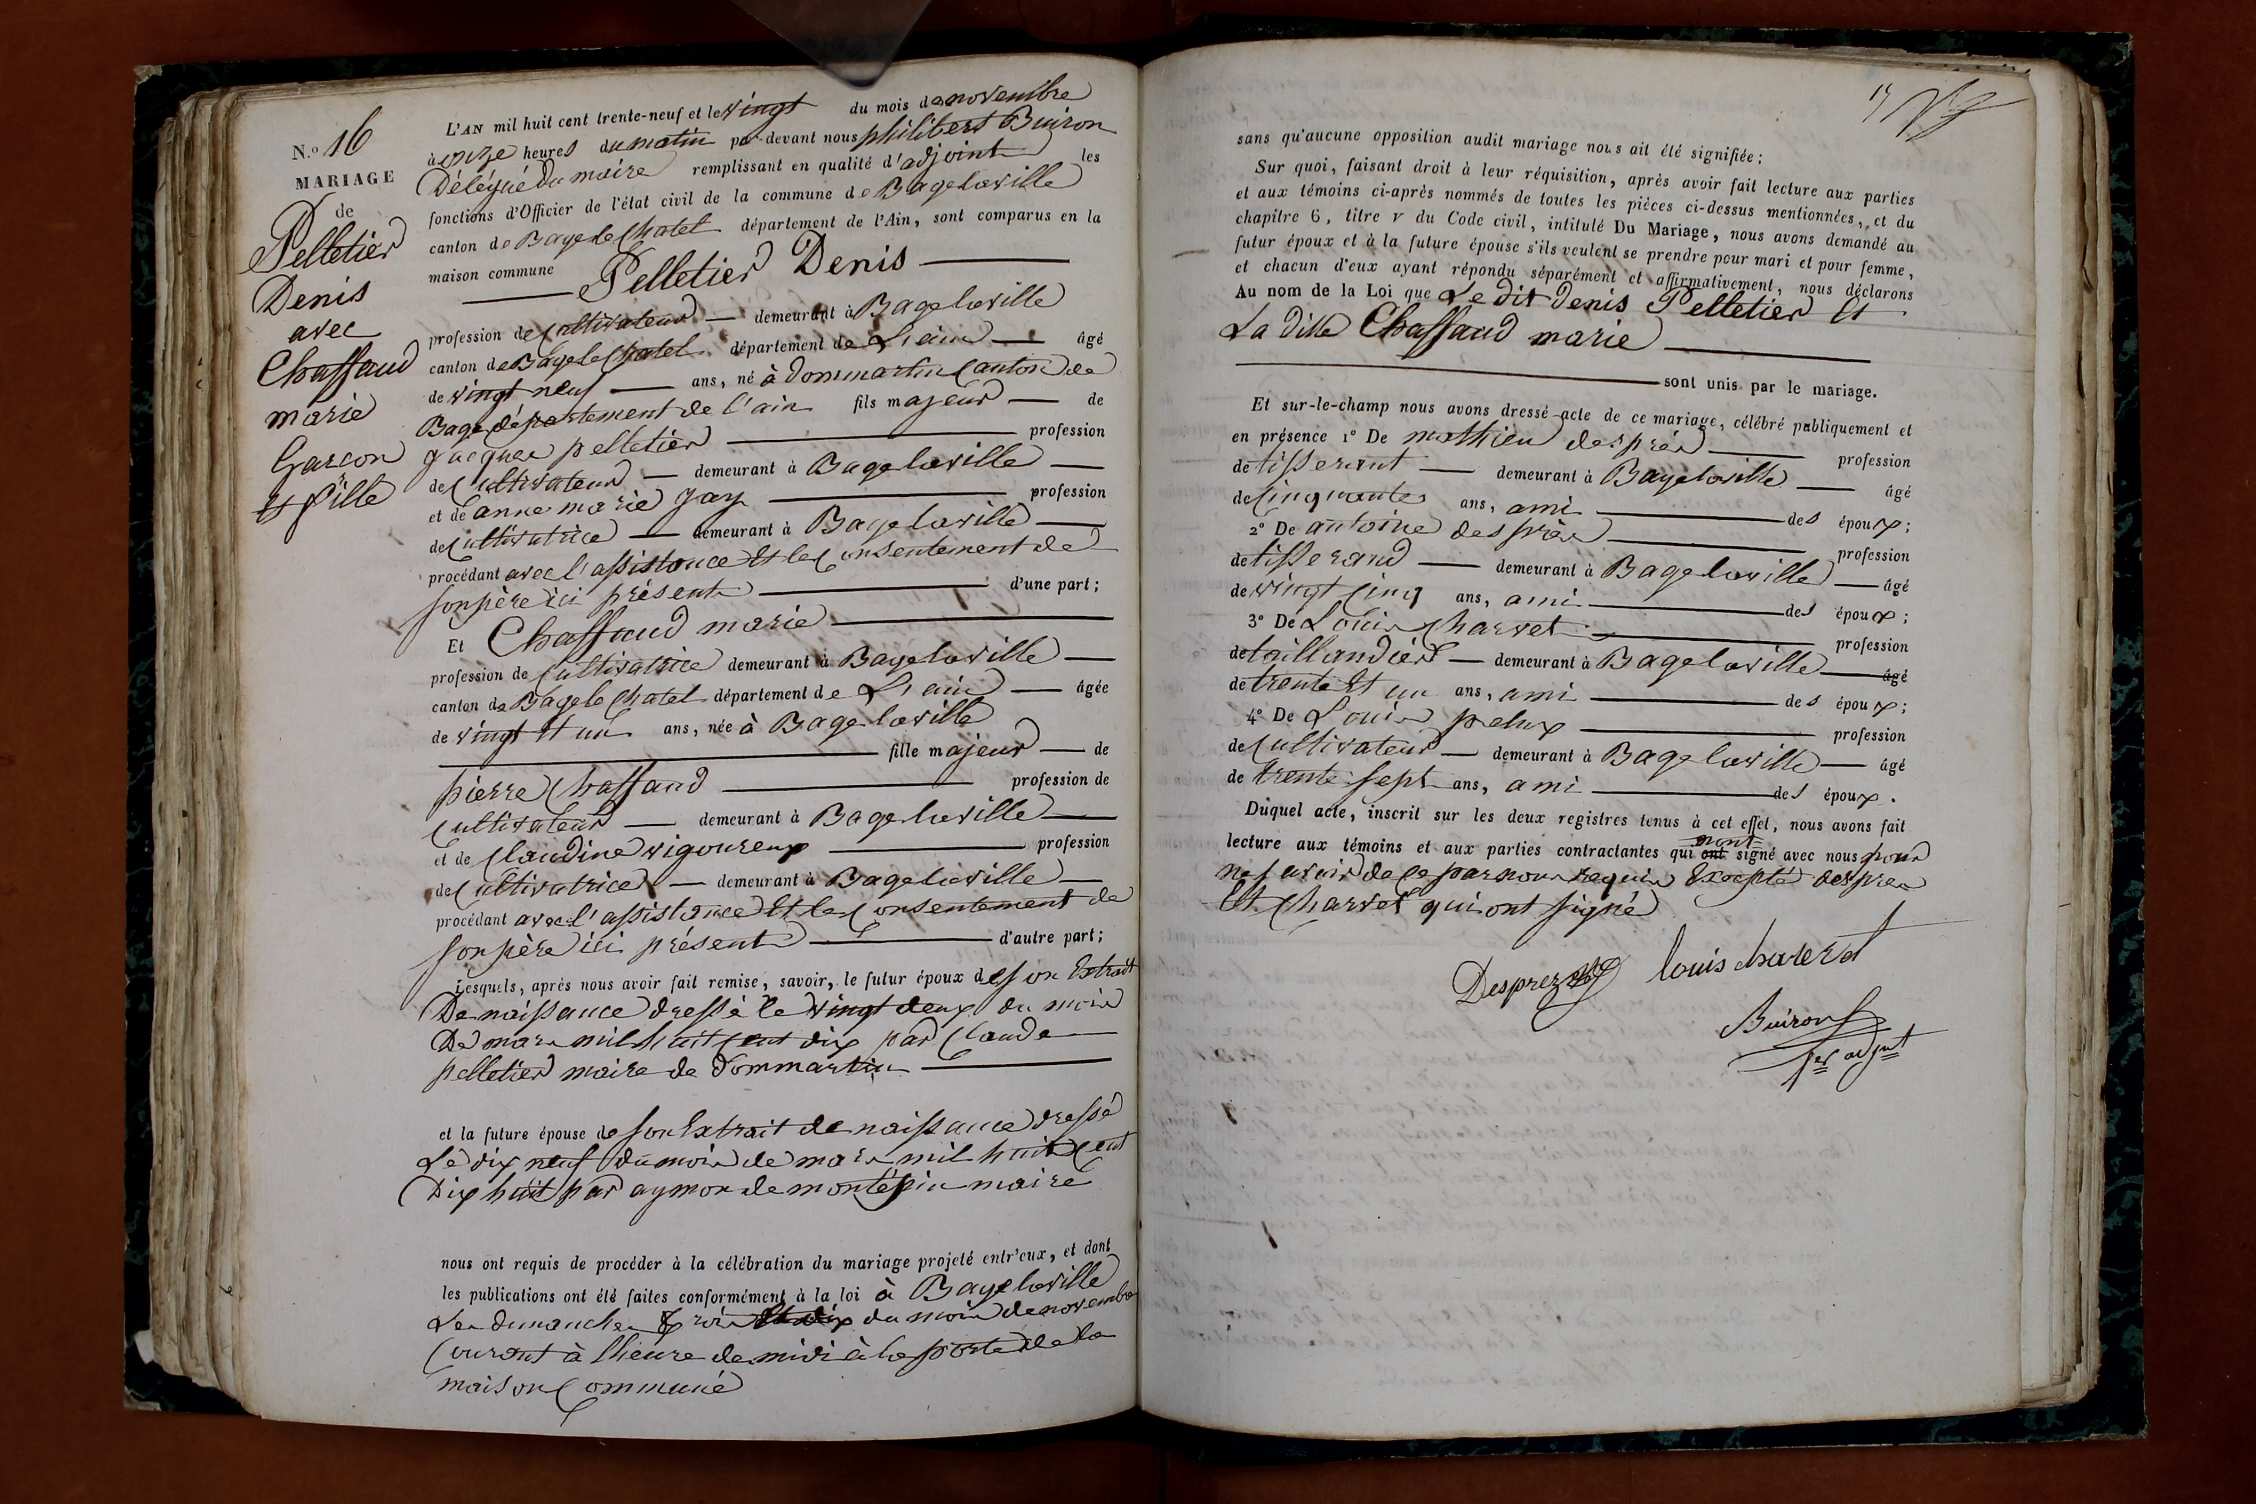 N.o 16
MARIAGE
de
Pelletier
Denis
avec
Chaffaud
marie
Garcon
et fille
L'AN mil huit cent trente-neuf et le vingt du mois de novembre
à onze heures du matin par-devant nous philibert Buiron
Délégué du maire remplissant en qualité d'adjoint les
fonctions d'Officier de l'état civil de la commune de Bagelaville
canton de Bagelechatel département de l'Ain, sont comparus en la
maison commune Pelletier Denis
profession de Cultivateur demeurant à Bagelaville
canton de Bagele Chatel département de L'ain âgé
de vingt neuf ans, né à dommartin Canton de
Bage département de l'ain fils majeur de
jacques pelletier profession
de Cultivateur demeurant à Bagelaville
et de anne marie jay profession
de Cultivatrice demeurant à Bagelaville
procédant avec l'assistance Et le Consentement de
son père ici présent d'une part;
Et Chaffaud marie
profession de Cultivatrice demeurant à Bagelaville
canton de Bagele Chatel département de L'ain âgée
de vingt et un ans, née à Bagelaville
fille majeur de
pierre Chaffaud profession de
Cultivateur demeurant à Bagelaville
et de Claudine vigoureux profession
de Cultivatrice demeurant à Bagelaville
procédant avec l'assistance Et le Consentement de
son père ici présent d'autre part;
Lesquels, après nous avoir fait remise, savoir, le futur époux de son Extrait
De naissance dressé le vingt deux du mois
De mars mil huit cent dix par Claude
pelletier maire de Dommartin
et la future épouse de son Extrait de naissance dressé
Le dix neuf du mois de mars mil huit Cent
Dix huit par aymon de montépin maire
nous ont requis de procéder à la célébration du mariage projeté entr'eux, et dont
les publications ont été faites conformément à la loi à Bagelaville
Les dimanches trois et dix du mois de novembre
Courant à l'heure de midi à la porte de la
maison Commune
17
sans qu'aucune opposition audit mariage nous ait été signifiée;
Sur quoi, faisant droit à leur réquisition, après avoir fait lecture aux parties
et aux témoins ci-après nommés de toutes les pièces ci-dessus mentionnées, et du
chapitre 6, titre V du Code civil, intitulé Du Mariage, nous avons demandé au
futur époux et à la future épouse s'ils veulent se prendre pour mari et pour femme,
et chacun d'eux ayant répondu séparément et affirmativement, nous déclarons
Au nom de la Loi que Le dit Denis Pelletier Et
La ditte Chaffaud marie
sont unis par le mariage.
Et sur-le-champ nous avons dressé acte de ce mariage, célébré publiquement et
en présence 1° De mathieu desprès profession
de tisserant demeurant à Bagelaville âgé
de Cinquante ans, ami des époux;
2° De antoine desprès profession
de tisserand demeurant à Bagelaville âgé
de vingt Cinq ans, ami des époux;
3° De Louis Charvet profession
de taillandier demeurant à Bagelaville âgé
de trente Et un ans, ami des époux;
4° De Louis pelux profession
de Cultivateur demeurant à Bagelaville âgé
de trente sept ans, ami des époux.
Duquel acte, inscrit sur les deux registres tenus à cet effet, nous avons fait
lecture aux témoins et aux parties contractantes qui ont n'ont signé avec nous pour
ne savoir de ce par nous requis Excepté desprès
Et Charvet qui ont signé
Desprez louis charvet
Buiron
1er adjnt